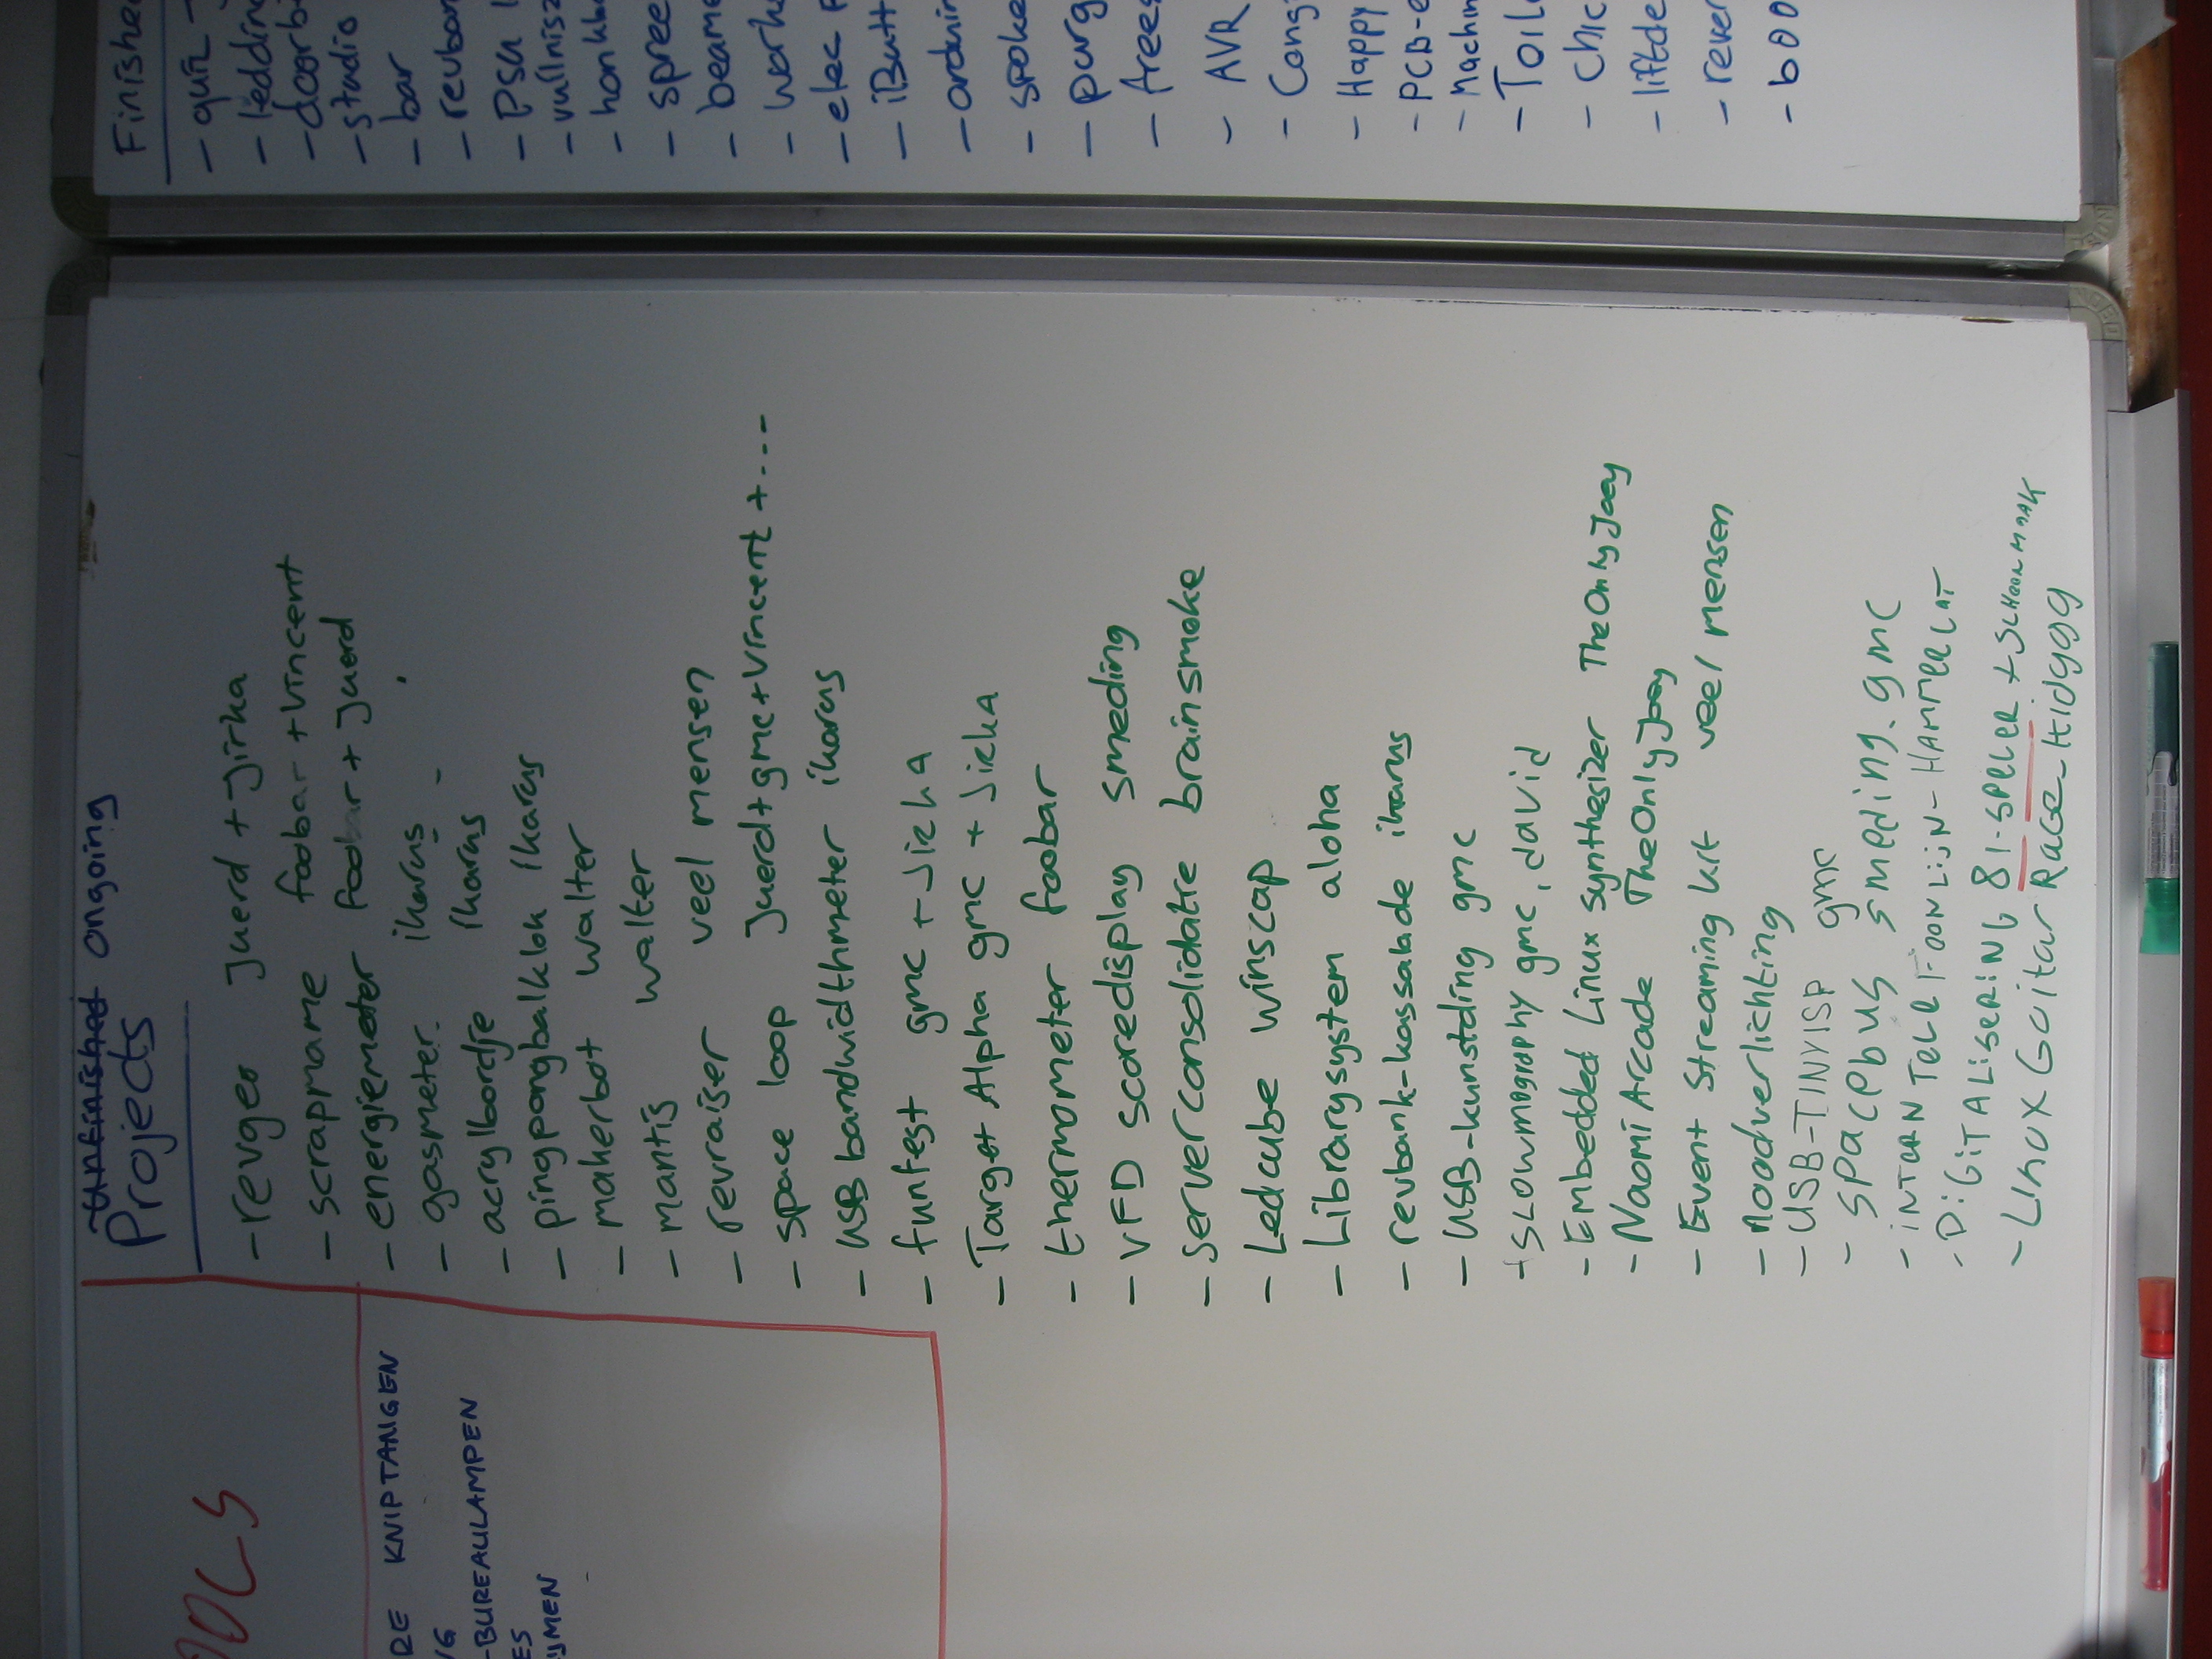 OOLS
RE KNIPTANGEN
NG
-BUREAULAMPEN
ES
IJMEN
Unfinished ongoing
Projects
- revgeo juerd + jirka
- scrapmame foobar + vincent
- energiemeter foobar + juerd
- gasmeter ikarus
- acrylbordje ikarus
- pingpongbalklok ikarus
- makerbot walter
- mantis walter
- revraiser veel mensen
- space loop juerd+gmc+vincent+...
- USB bandwidthmeter ikarus
- funfest gmc + JIRKA
- Target Alpha gmc + JIRKA
- thermometer foobar
- VFD scoredisplay smeding
- serverconsolidatie brainsmoke
- Ledcube winscap
- Librarysystem aloha
- revbank-kassalade ikarus
- USB-kunstding gmc
+ SLowmography gmc, david
- Embedded Linux synthesizer TheOnlyJoey
- Naomi Arcade TheOnlyJoey
- Event Streaming kit veel mensen
- Noodverlichting
- USB-TINYISP gmc
- spacebus smeding. gmc
- INTERN TELEFOONLIJN - HAMMERCAT
- DIGITALISERING 81-SPELER + SCHOONMAAK
- Linux Guitar Race - Hidggg
Finishe
- quiz -
- leddin
- doorb
- studio
- bar
- revban
- PSU
- vuilnisz
- honkb
- spree
- beame
- works
- elec
- iButt
- ardui
- spoke
- purg
- Arees
- AVR
- Cong
- Happy
- PCB-e
- Machin
- TOIL
- Chic
- liftde
- rever
- boo